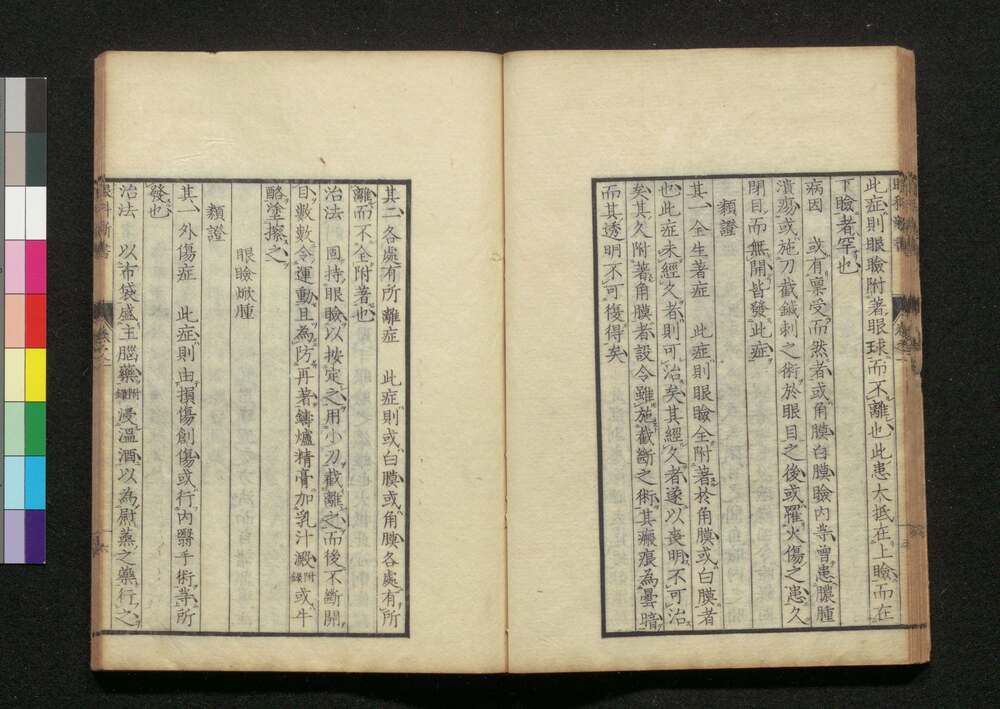 此症則眼瞼附著眼球而不離也此患太抵在上瞼而在
下瞼者罕也
病因　或有稟受而然者或角膜白膜瞼内等曾患膿腫
潰瘍或施刀截鍼刺之術於眼目之後或罹火傷之患久
閉目而無開皆發此症
類證
其一全生著症　此症則眼瞼全附著於角膜或白膜者
也此症未經久者則可治矣其經久者遂以喪明不可治
矣其久附著角膜者設令雖施截斷之術其瘢痕為曇暗
而其透明不可復得矣
其二各處有所離症　此症則或白膜或角膜各處有所
離而不全附著也
治法　固持眼瞼以按定之用小刀截離之而後不斷開
目數數令運動且為防再著鑄爐精膏加乳汁澱附録或牛
酪塗擦之
眼瞼焮腫
類證
其一外傷症　此症則由損傷創傷或行内翳手術等所
發也
治法　以布袋盛主腦藥附録浸温酒以為慰蒸之藥行之
眼科新書
卷之二